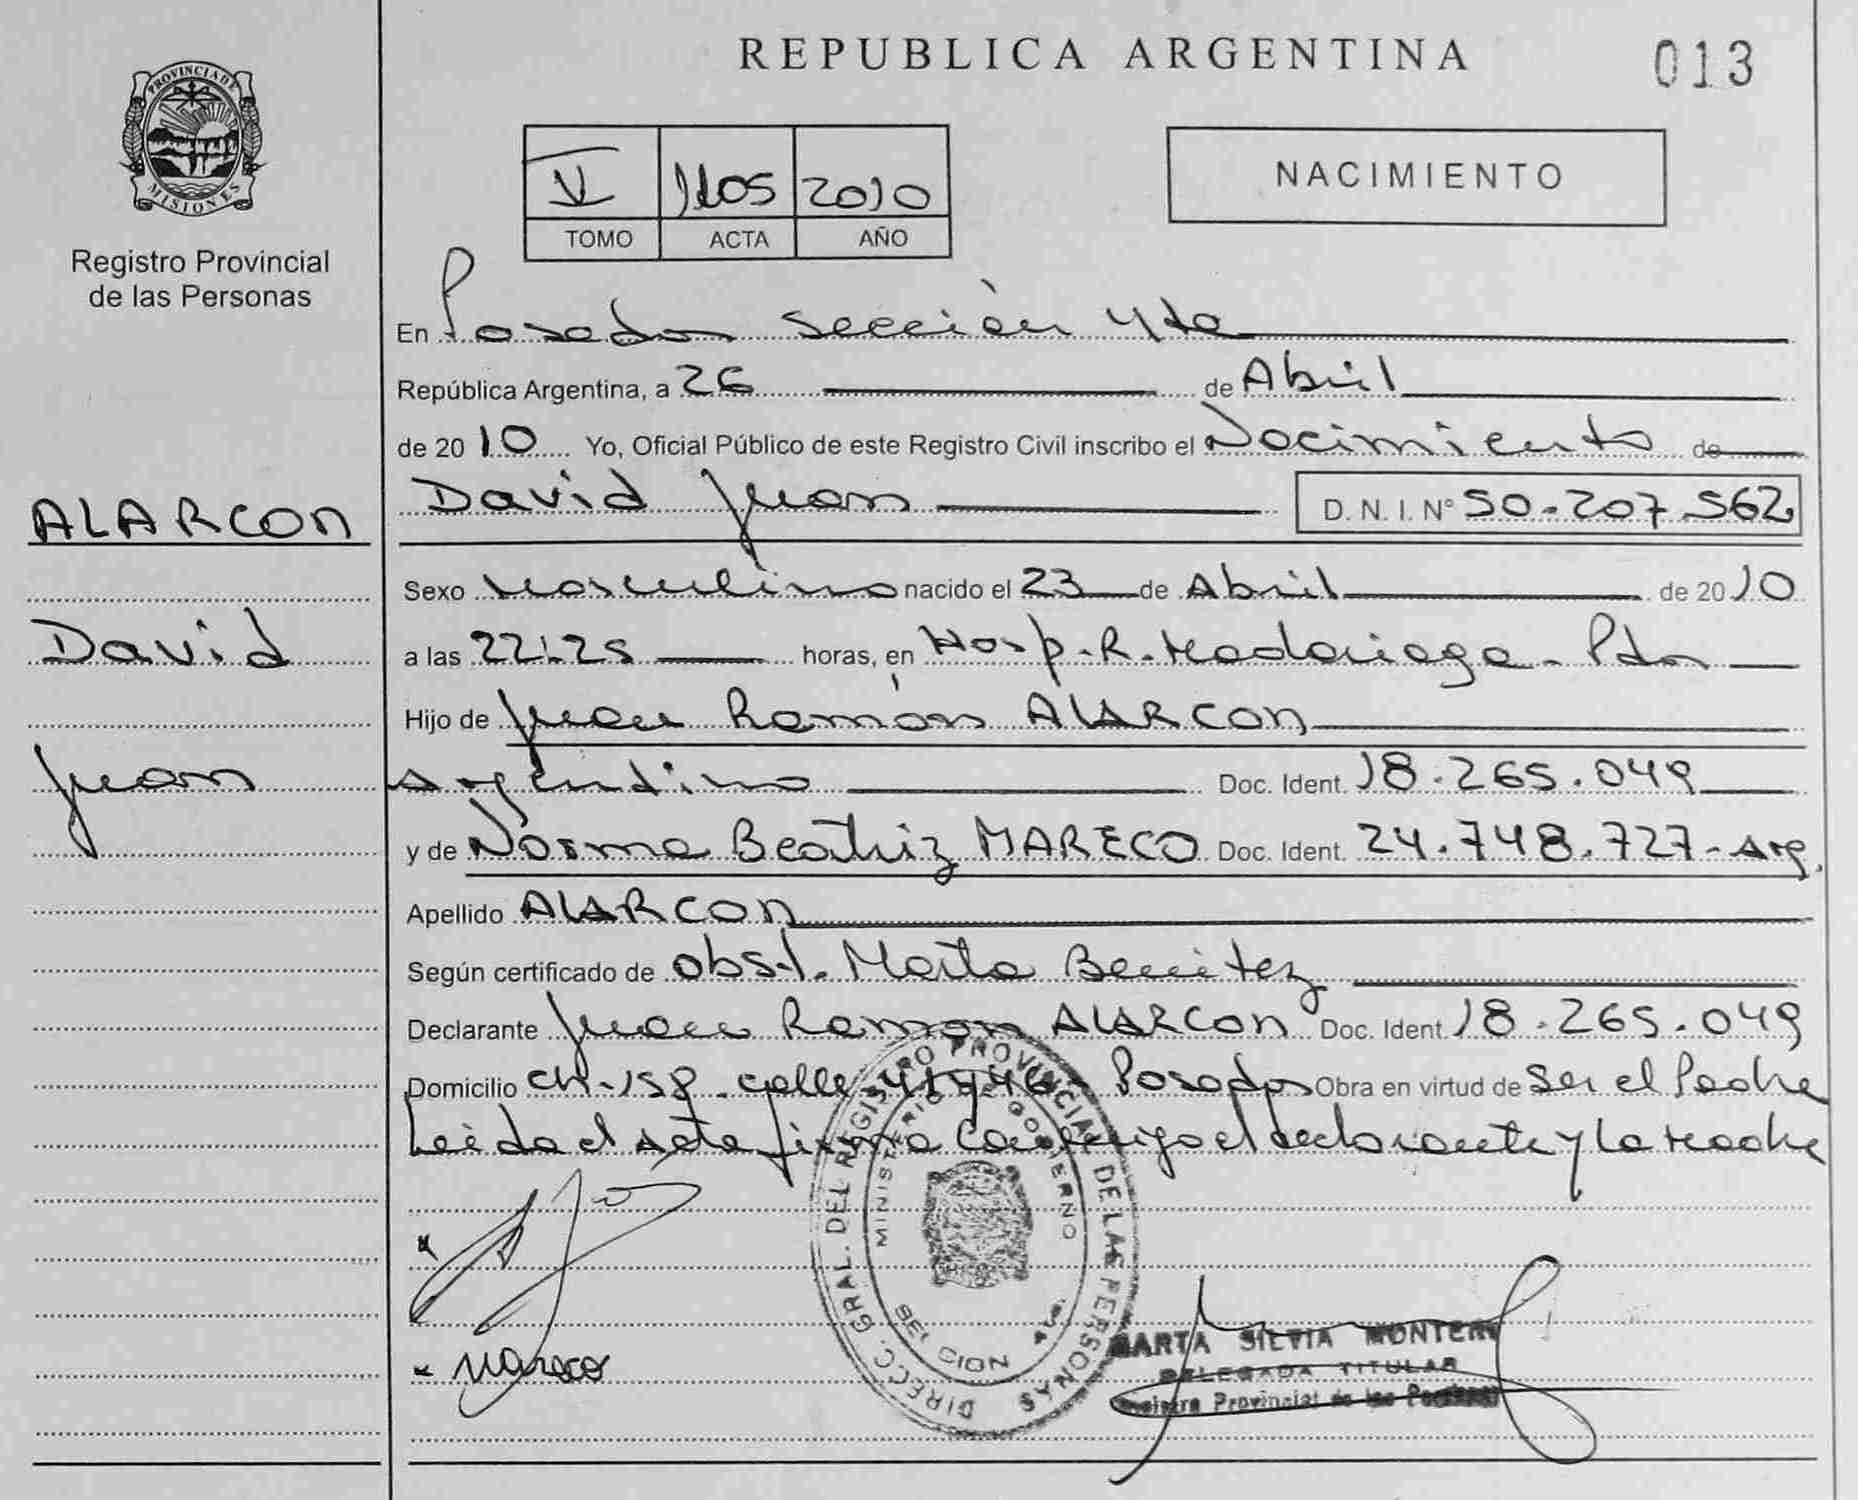 REPUBLICA ARGENTINA
013
PROVINCIA DE
MISIONES
Registro Provincial
de las Personas
V 2010
TOMO ACTA AÑO
NACIMIENTO
En Posadas Sección 4ta
República Argentina, a 26 de Abril
de 2010 Yo, Oficial Público de este Registro Civil inscribo el Nacimiento de
David Juan D. N. I. Nº 50.207.562
ALARCON
David
Juan
Sexo Masculino nacido el 23 de Abril de 2010
a las 22:25 horas, en Hosp. R. Madariaga - Pdas
Hijo de Juan Ramón ALARCON
Argentino Doc. Ident. 18.265.049
y de Norma Beatriz MARECO Doc. Ident. 24.748.727 - Arg.
Apellido ALARCON
Según certificado de Obst. Marta Benitez
Declarante Juan Ramon ALARCON Doc. Ident 18.265.049
Domicilio Ch-158 - calle Posadas Obra en virtud de Ser el Padre
Leida el Acta firma Conmigo el declarante y La Madre
DIRECC. GRAL. DEL REGISTRO PROVINCIAL DE LAS PERSONAS
MINISTERIO DE GOBIERNO
Mareco
MARTA SILVIA
DELEGADA TITULAR
Registro Provincial de las Personas